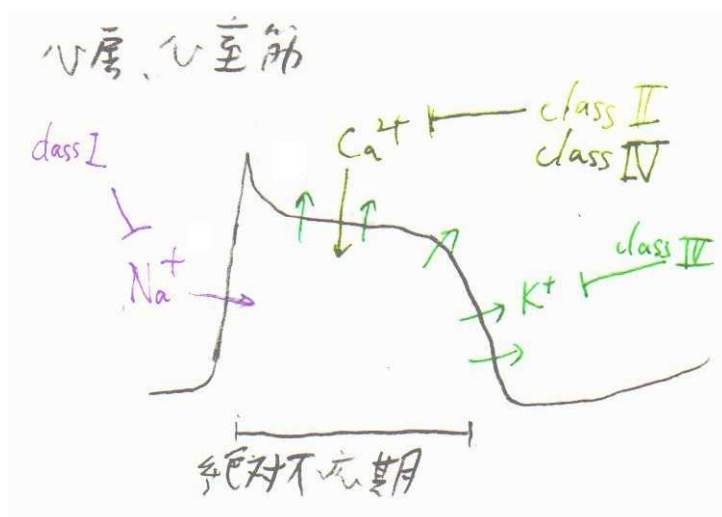 心房、心室筋
class I
Ca2+
class II
class IV
Na+
K+
class III
絶対不応期